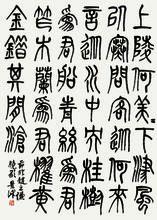 上陵何美〻下津風
以寒問客從何來
言從水中央桂樹
為君船青絲為君
笮木蘭為君櫂黃
金錯其間滄